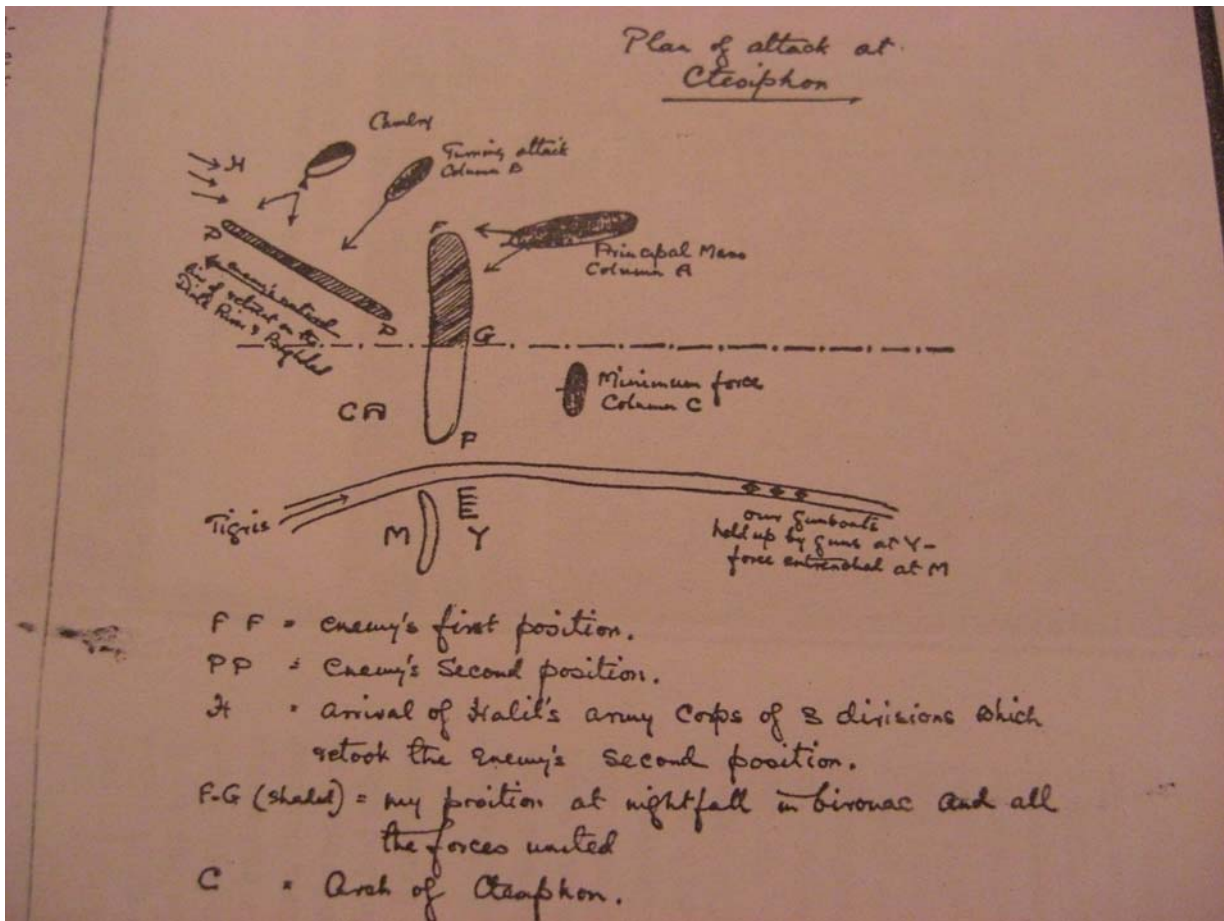 Plan of attack at
Ctesiphon
Cavalry
H
Turning attack
Column B
F
P
Principal Mass
Column A
enemy's natural
line of retreat on the
Diala River & Baghdad
P
G
Minimum force
Column C
C
F
Tigris
M
Y
our gunboats
held up by guns at Y-
force entrenched at M
F F = enemy's first position.
P P = Enemy's Second position.
H = arrival of Halil's army Corps of 3 divisions which
retook the Enemy's Second position.
F-G (shaded) = my position at nightfall in bivouac and all
the forces united
C = Arch of Ctesiphon.